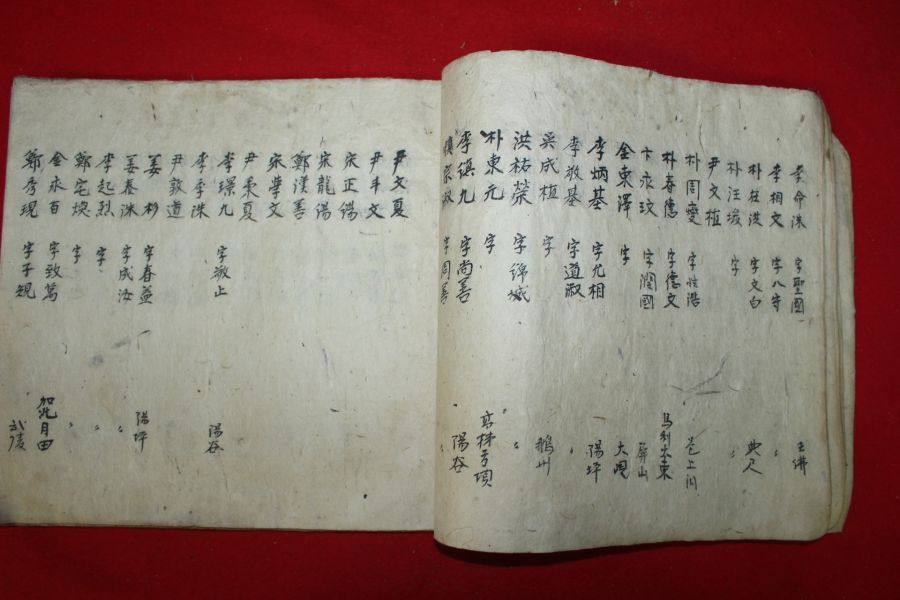 李命洙 字聖國 玉佛
李相文 字八守
朴在洪 字文白 典尺
朴汪埈 字 〃
尹文植
朴周燮 字性浩 巴上洞
朴春德 字德文 馬利大東
卞永玟 字潤國 屏山
金東澤 字 大峴
李炳基 字允相 陽坪
李敬基 字道淑 〃
吳成植 字 鵝州
洪祐榮 字錦城 〃
朴東元 字
李鎮九 字尚善 陽谷
字周善 〃
尹文夏
尹丰文
宋正錫
宋龍錫
鄭漢善
宋華文
尹秉夏
李璟九 字敬止 陽谷
李季洙
尹敦道
姜杉 字春益 陽坪
姜春洙 字成汝 〃
李起烈 字 〃
鄭宅煥 字 〃
金永百 字致萬 加北月田
鄭秀現 字子規 武陵